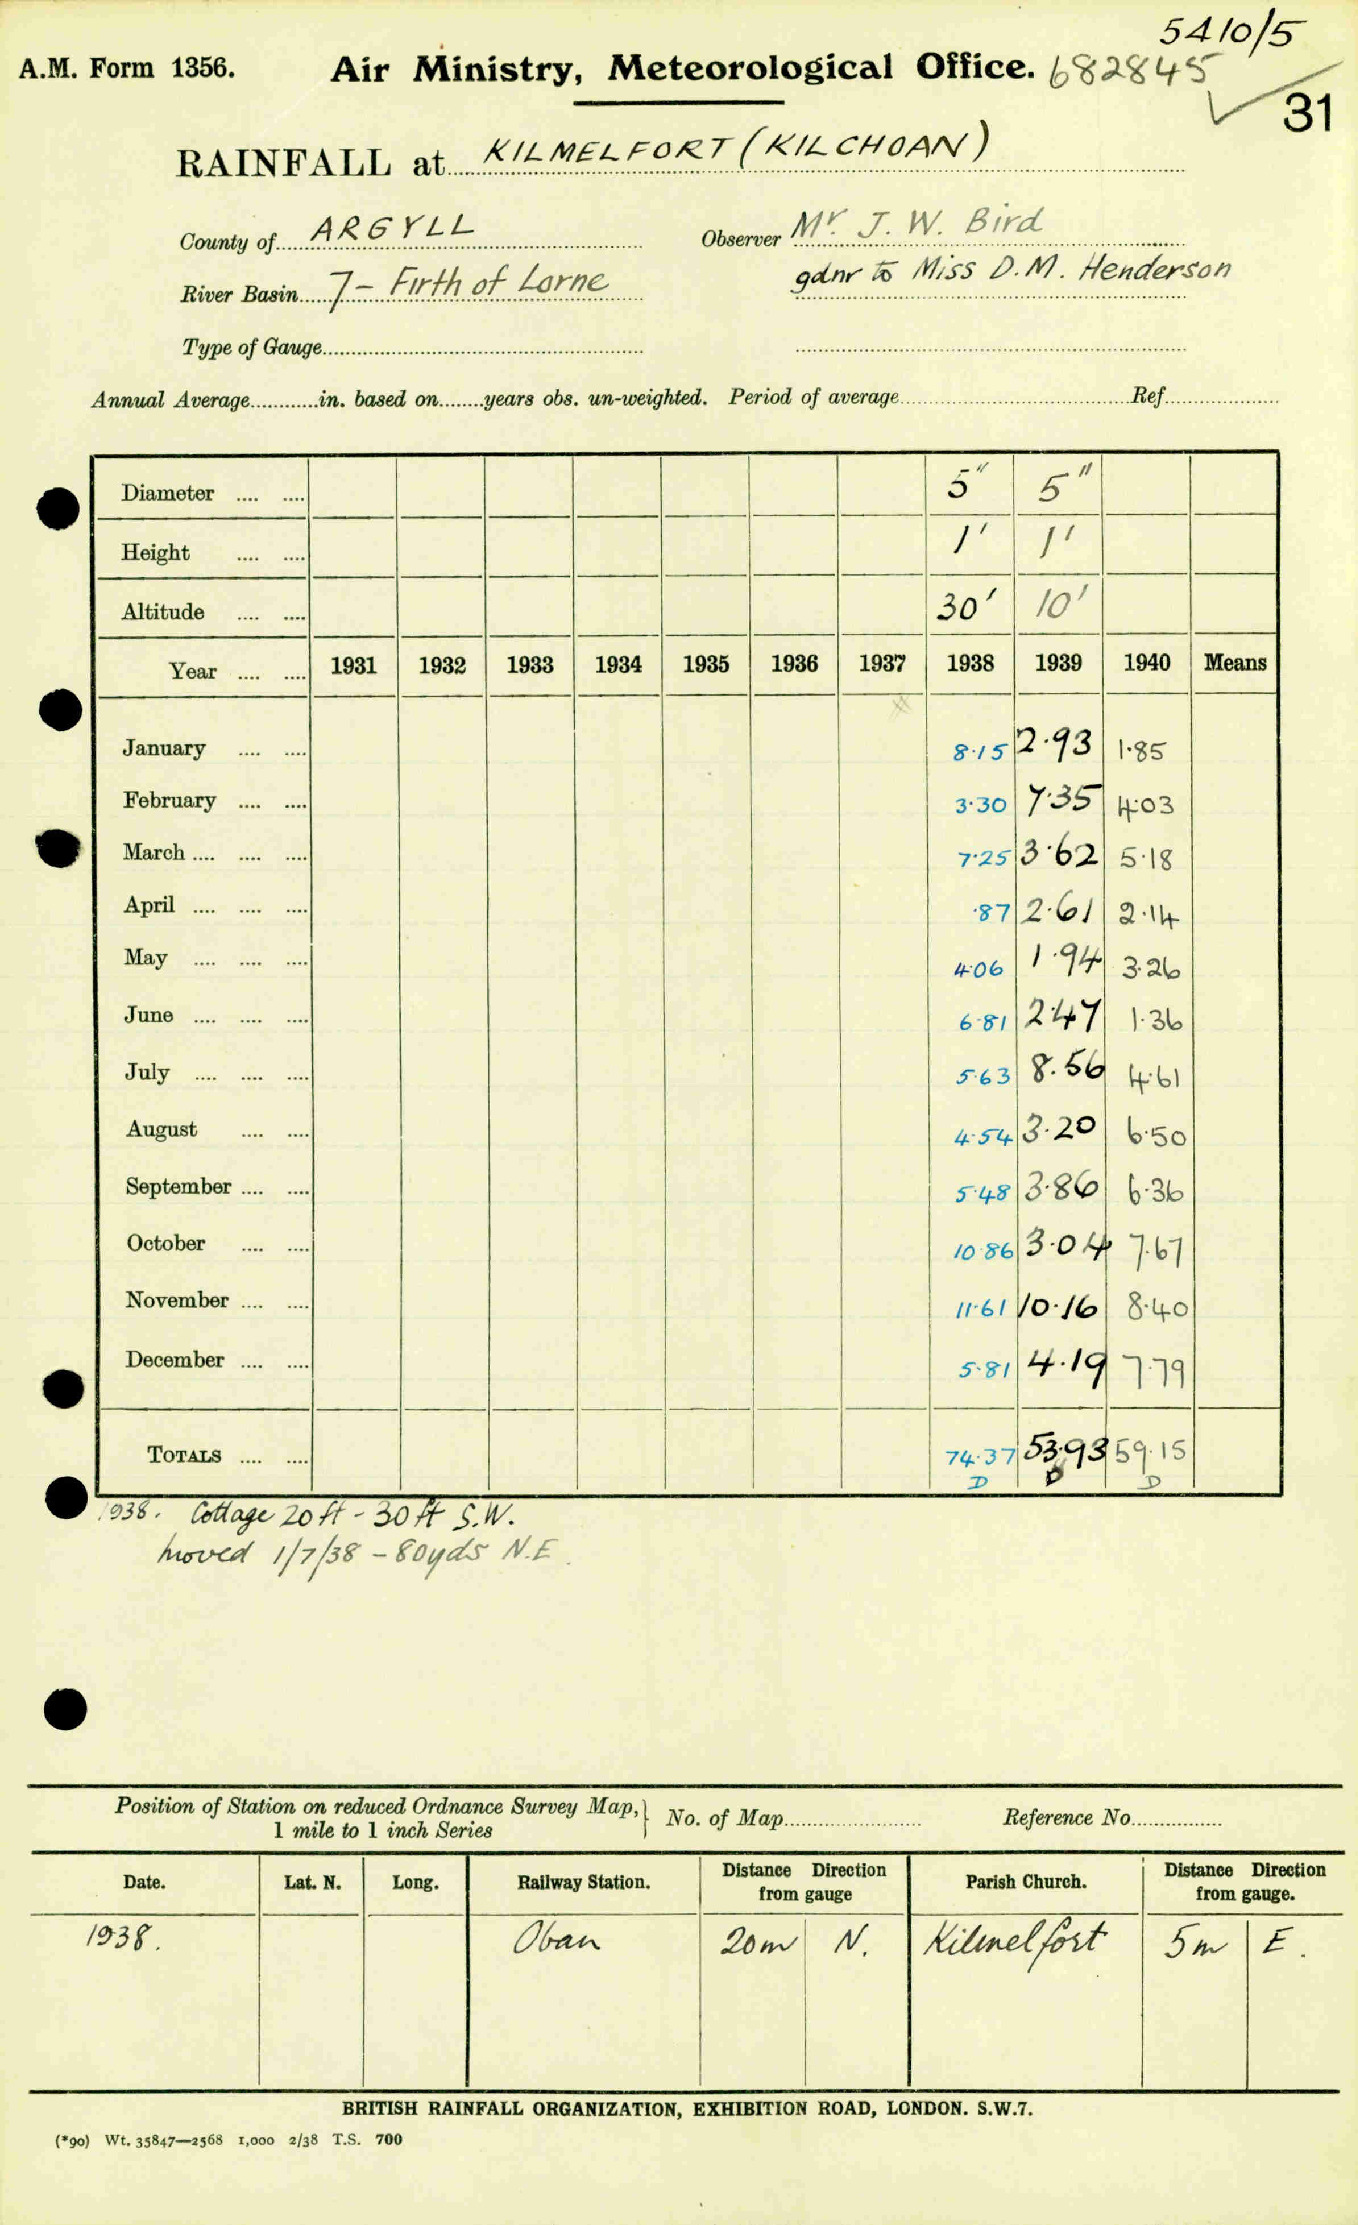 5410/5
A.M. Form 1356. Air Ministry, Meteorological Office. 682845
31
RAINFALL at KILMELFORT (KILCHOAN)
County of ARGYLL Observer Mr. J. W. Bird
River Basin 7 - Firth of Lorne gdnr to Miss D. M. Henderson
Type of Gauge
Annual Average in. based on years obs. un-weighted. Period of average Ref.
Diameter 5" 5"
Height 1' 1'
Altitude 30' 10'
Year 1931 1932 1933 1934 1935 1936 1937 1938 1939 1940 Means
January 8·15 2·93 1·85
February 3·30 7·35 4·03
March 7·25 3·62 5·18
April ·87 2·61 2·14
May 4·06 1·94 3·26
June 6·81 2·47 1·36
July 5·63 8·56 4·61
August 4·54 3·20 6·50
September 5·48 3·86 6·36
October 10·86 3·04 7·67
November 11·61 10·16 8·40
December 5·81 4·19 7·79
TOTALS 74·37 53·93 59·15
D D D
1938. Cottage 20 ft - 30 ft S.W.
moved 1/7/38 - 80yds N.E.
Position of Station on reduced Ordnance Survey Map, No. of Map Reference No.
1 mile to 1 inch Series
Date. Lat. N. Long. Railway Station. Distance Direction from gauge Parish Church. Distance Direction from gauge.
1938. Oban 20m N. Kilmelfort 5m E.
BRITISH RAINFALL ORGANIZATION, EXHIBITION ROAD, LONDON. S.W.7.
(*90) Wt. 35847—2568 1,000 2/38 T.S. 700